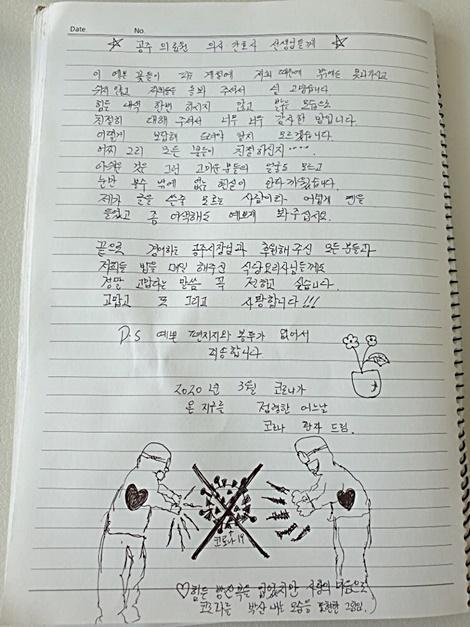 Date No.
☆ 공주 의료원 의사 간호사 선생님들께 ☆
이 예쁜 꽃들이 피는 계절에 저희 때문에 밖에는 못나가시고
쉬지 않고 저희들을 돌봐 주셔서 넘 고맙습니다
힘든 내색 한번 하시지 않고 밝은 모습으로
친절히 대해 주셔서 너무 너무 감사한 맘입니다.
어떻게 보답해 드려야 할지 모르겠습니다.
어찌 그리 모든 분들이 친절하신지····
아쉬운 것은 그런 고마운 분들의 얼굴도 모르고
눈만 볼수 밖에 없는 현실이 안타까웠습니다.
제가 글을 쓸줄 모르는 사람이라 어렵게 펜을
들었고 좀 어색해도 예쁘게 봐주십시요.
끝으로 경애하는 공주시장님과 후원해 주신 모든분들과
저희들 밥을 매일 해주신 식당요리사님들께도
정말 고맙다는 말씀 꼭 전하고 싶습니다.
고맙고 또 그리고 사랑합니다!!!
P.S 예쁜 편지지와 봉투가 없어서
죄송합니다
2020년 3월 코로나가
온 지구를 점령한 어느날
코로나 환자 드림.
코로나19
♡힘든 방진복을 입었지만 사랑의 마음으로
코로나를 박살 내는 모습을 표현한 그림임.